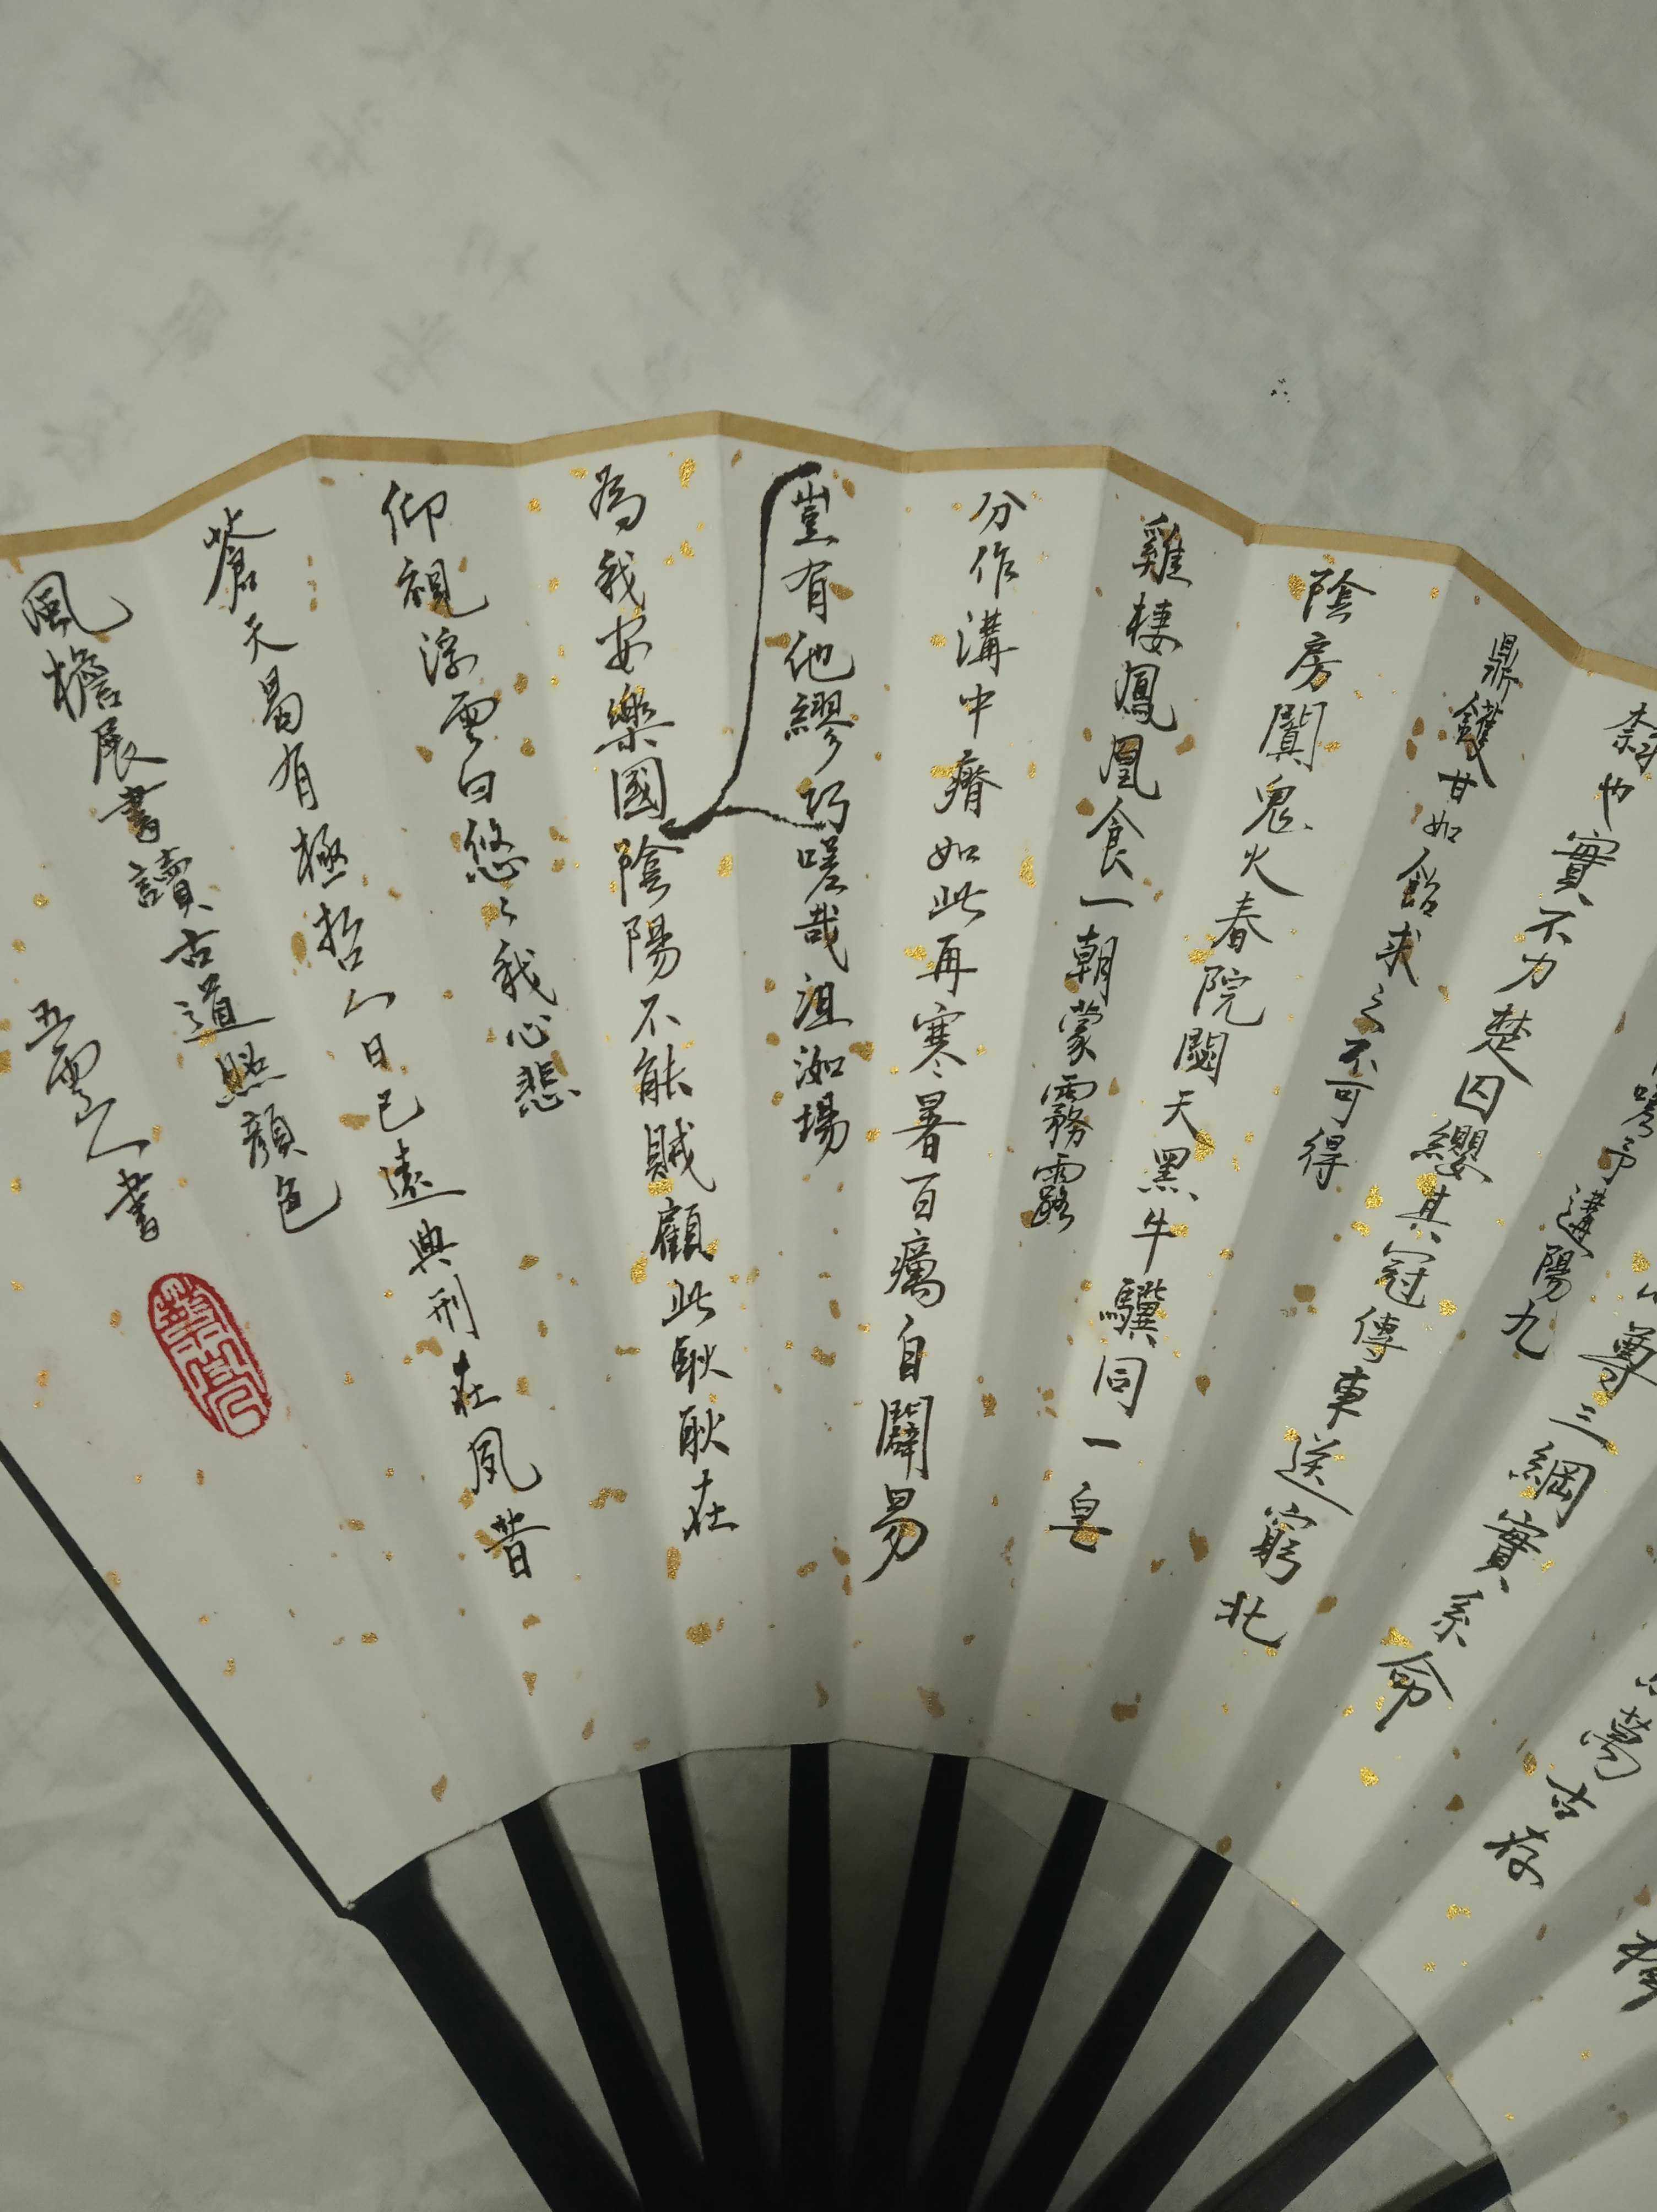 尊三綱實系命
嗟予遘陽九
隸也實不力楚囚纓其冠傳車送窮北
鼎鑊甘如飴求之不可得
陰房闃鬼火春院閟天黑牛驥同一皂
雞棲鳳凰食一朝蒙霧露
分作溝中瘠如此再寒暑百癘自闢易
豈有他繆巧嗟哉沮洳場
為我安樂國陰陽不能賊顧此耿耿在
仰視浮雲白悠々我心悲
蒼天曷有極哲人日已遠典刑在夙昔
風檐展書讀古道照顏色
五雲人書